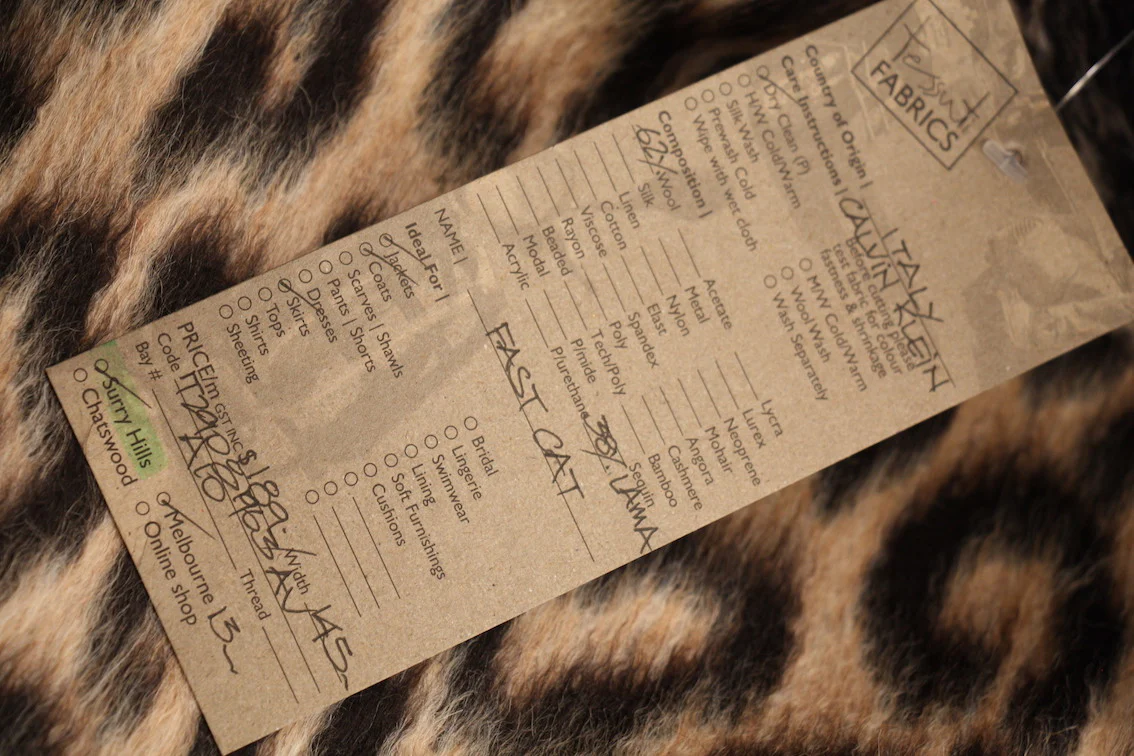 Tessuti
FABRICS
Country of Origin | ITALY
Care Instructions | CALVIN KLEIN
Dry Clean (P)
H/W Cold/Warm
Silk Wash
Prewash Cold
Wipe with wet cloth
Before cutting, please
test fabric for colour
fastness & shrinkage
M/W Cold/Warm
Wool Wash
Wash Separately
Composition |
62% Wool
Silk
Linen
Cotton
Viscose
Rayon
Beaded
Modal
Acrylic
Acetate
Metal
Nylon
Elast
Spandex
Poly
Tech/Poly
P/mide
P/urethane
Lycra
Lurex
Neoprene
Mohair
Angora
Cashmere
Bamboo
Sequin
38% LAMA
NAME | FAST CAT
Ideal For |
Jackets
Coats
Scarves | Shawls
Pants | Shorts
Dresses
Skirts
Tops
Shirts
Sheeting
Bridal
Lingerie
Swimwear
Lining
Soft Furnishings
Cushions
PRICE/m GST INC $ Width 145
Code
Bay # Thread
Surry Hills
Chatswood
Melbourne 13m
Online shop